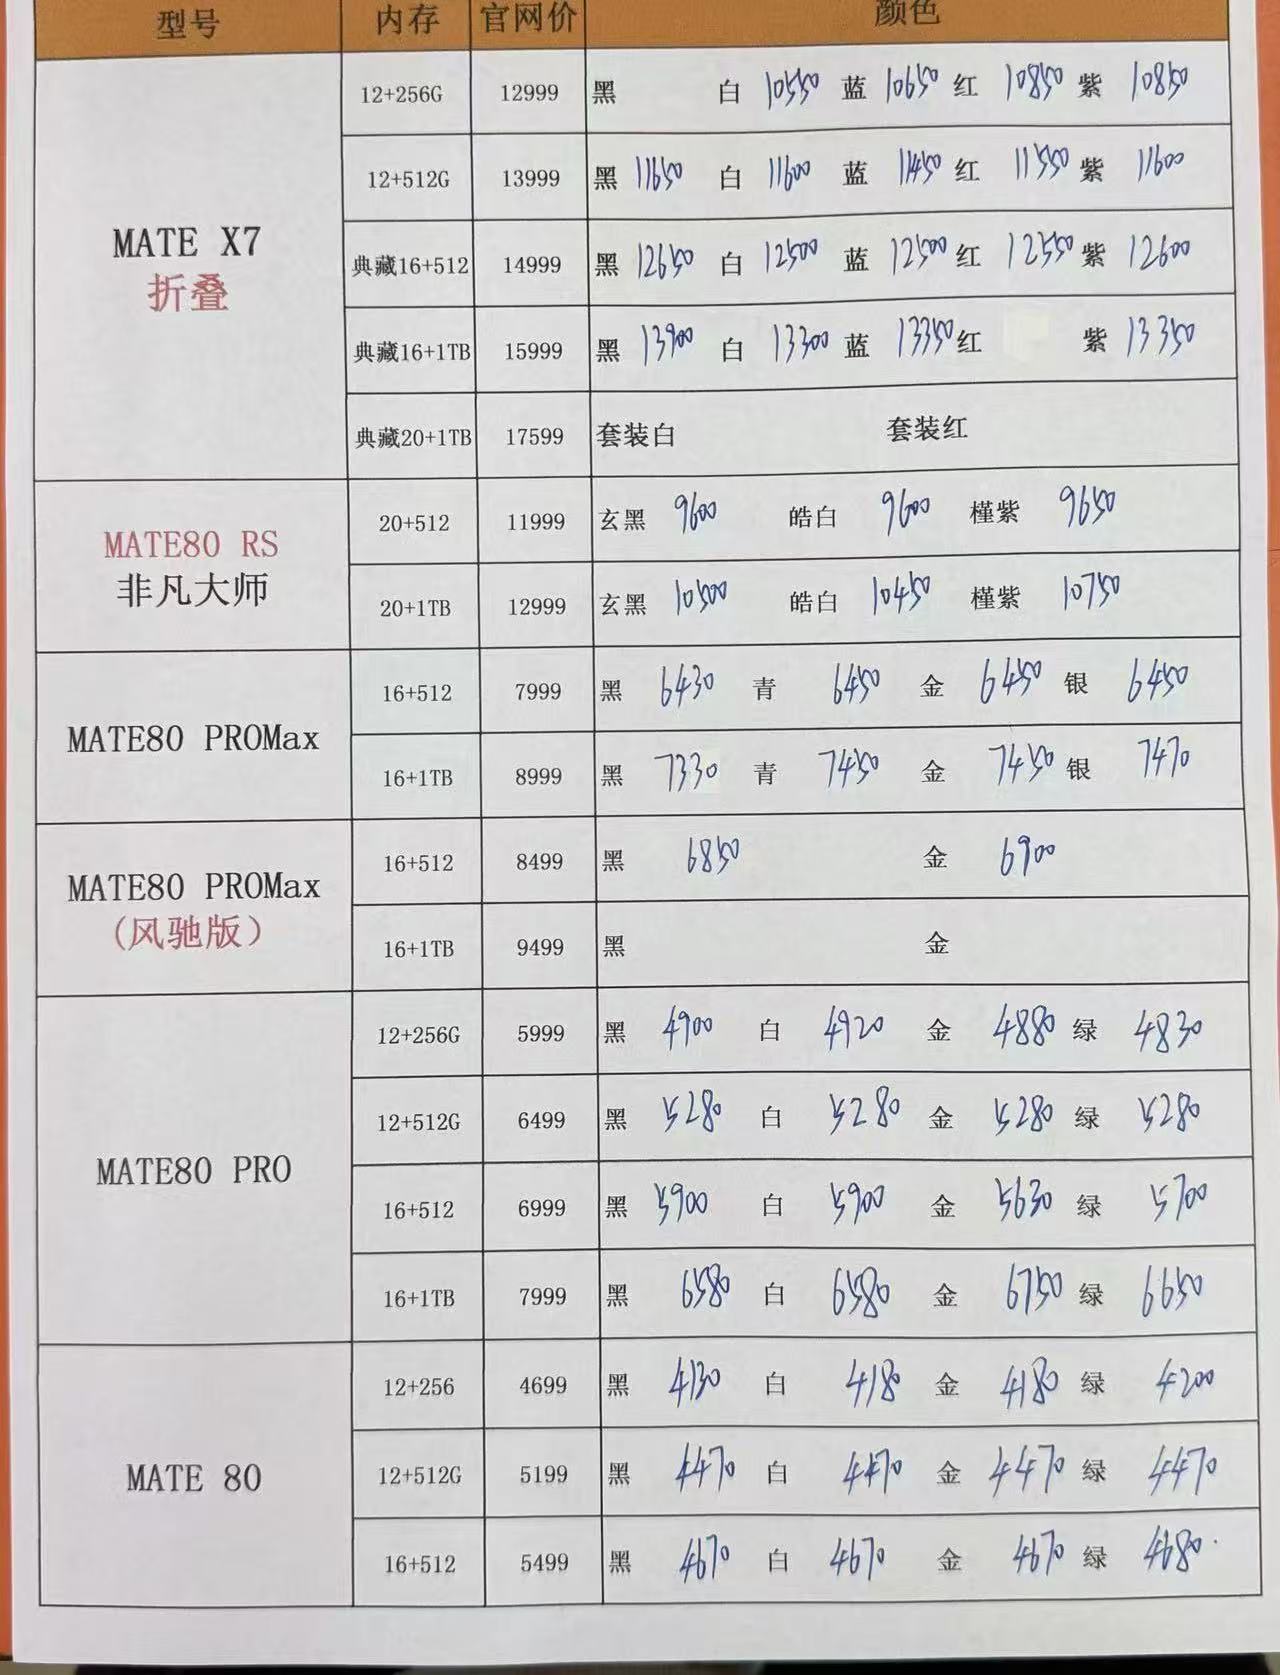 型号 内存 官网价 颜色
12+256G 12999 黑 白 10550 蓝 10650 红 10850 紫 10850
12+512G 13999 黑 11650 白 11600 蓝 11450 红 11550 紫 11600
MATE X7
折叠
典藏16+512 14999 黑 12650 白 12500 蓝 12500 红 12550 紫 12600
典藏16+1TB 15999 黑 13900 白 13300 蓝 13350 红 紫 13350
典藏20+1TB 17599 套装白 套装红
MATE80 RS
非凡大师
20+512 11999 玄黑 9600 皓白 9600 槿紫 9650
20+1TB 12999 玄黑 10500 皓白 10450 槿紫 10750
MATE80 PROMax
16+512 7999 黑 6430 青 6450 金 6450 银 6450
16+1TB 8999 黑 7330 青 7450 金 7450 银 7470
MATE80 PROMax
(风驰版）
16+512 8499 黑 6850 金 6900
16+1TB 9499 黑 金
MATE80 PRO
12+256G 5999 黑 4900 白 4920 金 4880 绿 4830
12+512G 6499 黑 5280 白 5280 金 5280 绿 5280
16+512 6999 黑 5900 白 5900 金 5630 绿 5700
16+1TB 7999 黑 6580 白 6580 金 6750 绿 6650
MATE 80
12+256 4699 黑 4130 白 4180 金 4180 绿 4200
12+512G 5199 黑 4470 白 4470 金 4470 绿 4470
16+512 5499 黑 4670 白 4670 金 4670 绿 4680